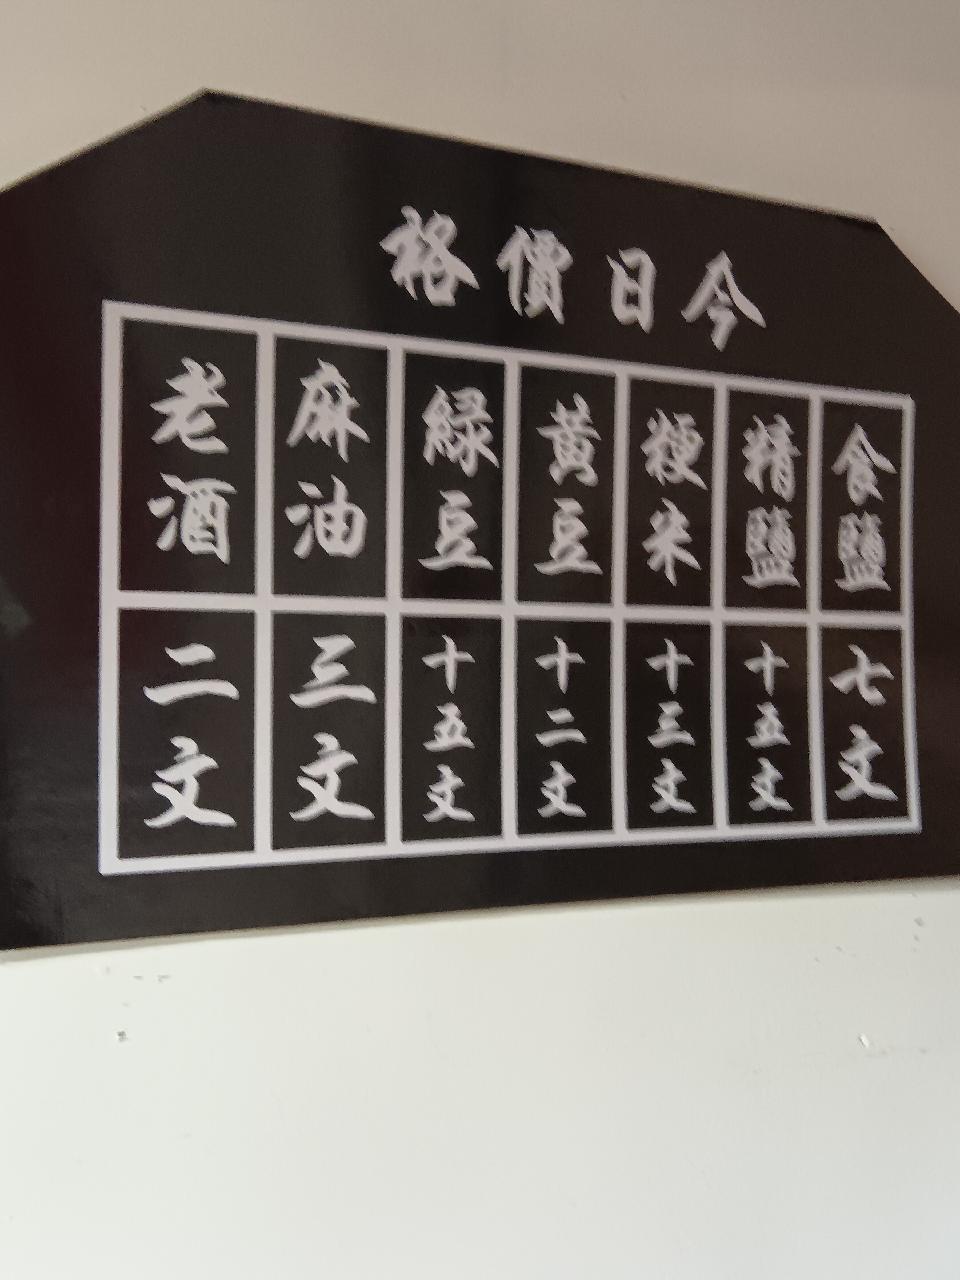 今日價格
食鹽
七文
精鹽
十五文
粳米
十三文
黃豆
十二文
緑豆
十五文
麻油
三文
老酒
二文